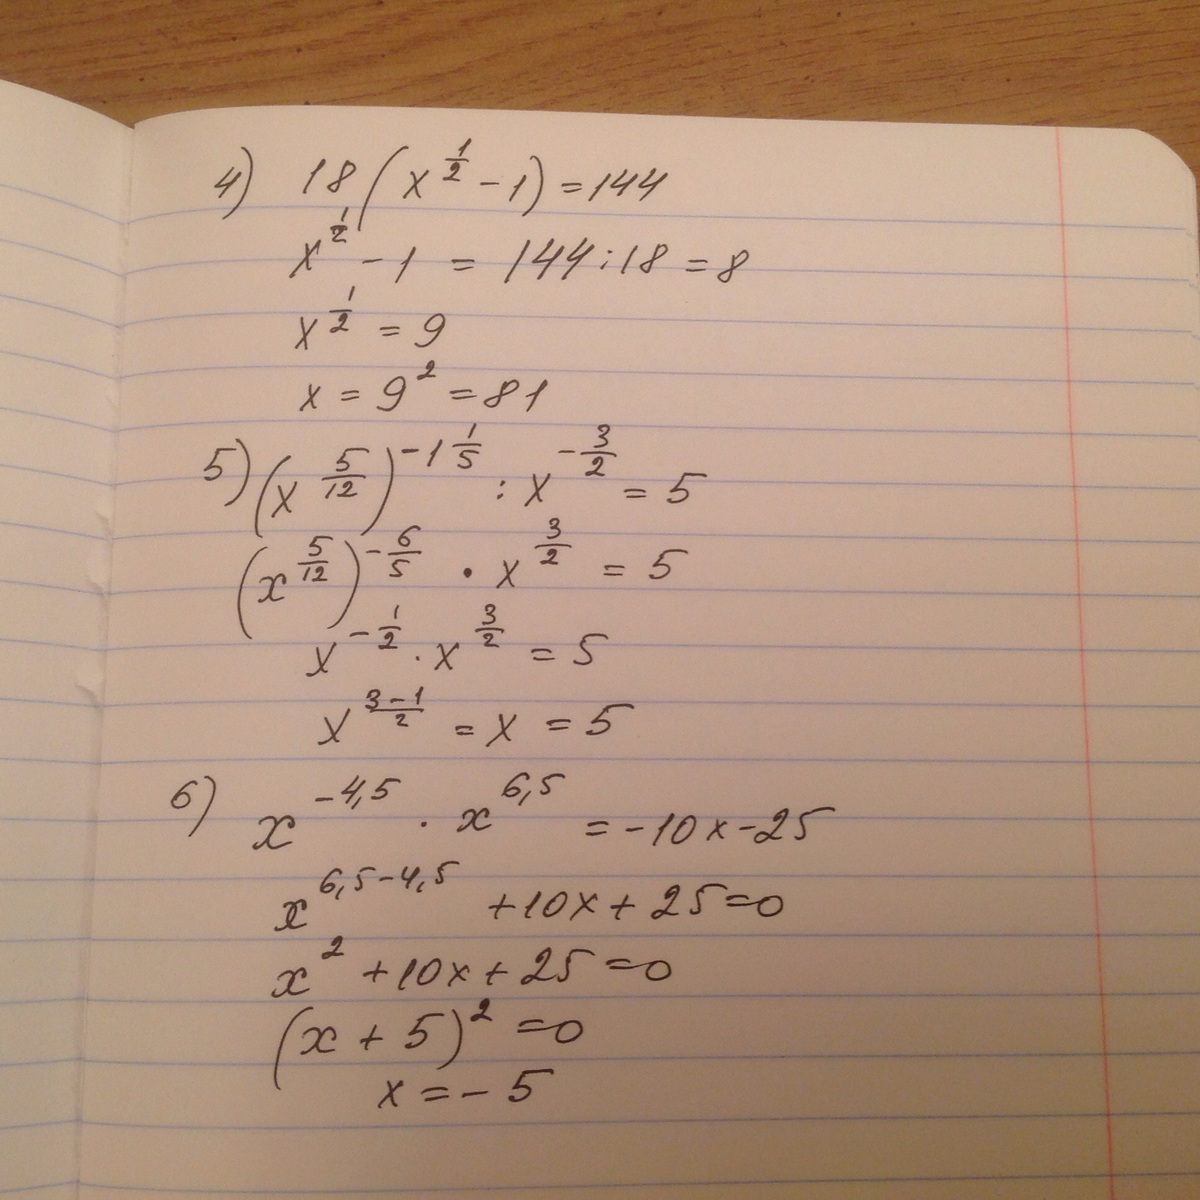 4) 18(x^{\frac{1}{2}} - 1) = 144
x^{\frac{1}{2}} - 1 = 144:18 = 8
x^{\frac{1}{2}} = 9
x = 9^2 = 81
5) (x^{\frac{5}{12}})^{-1\frac{1}{5}} : x^{-\frac{3}{2}} = 5
(x^{\frac{5}{12}})^{-\frac{6}{5}} · x^{\frac{3}{2}} = 5
x^{-\frac{1}{2}} · x^{\frac{3}{2}} = 5
x^{\frac{3-1}{2}} = x = 5
6) x^{-4,5} · x^{6,5} = -10x - 25
x^{6,5-4,5} + 10x + 25 = 0
x^2 + 10x + 25 = 0
(x + 5)^2 = 0
x = -5